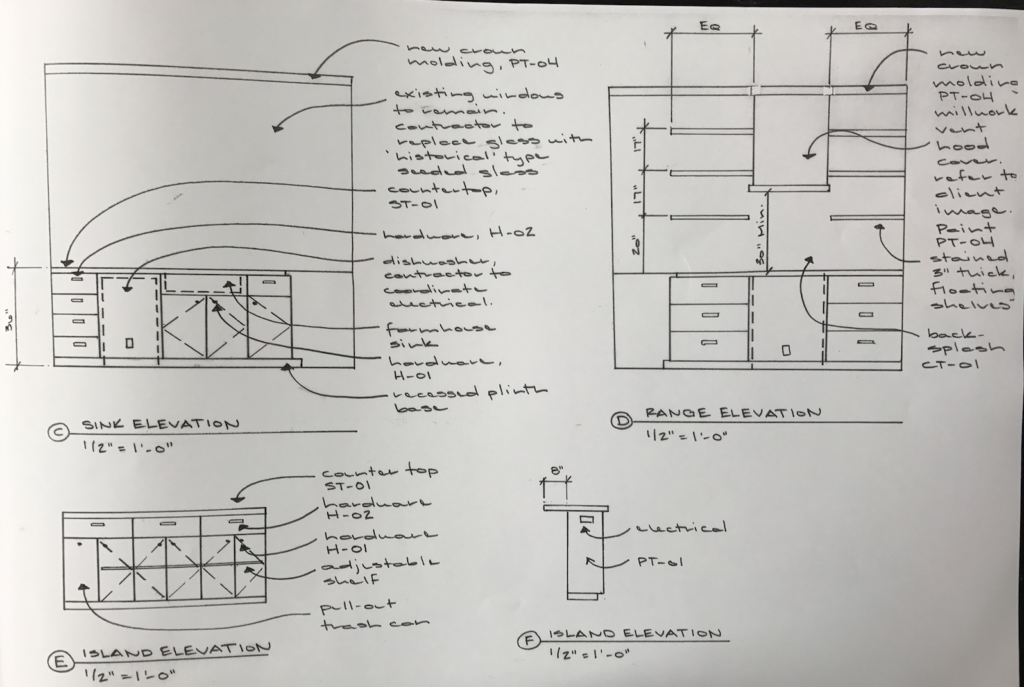 new crown
molding, PT-04
existing windows
to remain.
contractor to
replace glass with
'historical' type
seeded glass
countertop,
ST-01
hardware, H-02
dishwasher,
contractor to
coordinate
electrical.
farmhouse
sink
hardware,
H-01
recessed plinth
base
36"
C SINK ELEVATION
1/2" = 1'-0"
EQ
EQ
17"
17"
20"
30" Min.
new
crown
molding
PT-04
millwork
vent
hood
cover.
refer to
client
image.
Paint
PT-04
stained
3" thick,
floating
shelves
back-
splash
CT-01
D RANGE ELEVATION
1/2" = 1'-0"
counter top
ST-01
hardware
H-02
hardware
H-01
adjustable
shelf
pull-out
trash can
E ISLAND ELEVATION
1/2" = 1'-0"
8"
electrical
PT-01
F ISLAND ELEVATION
1/2" = 1'-0"